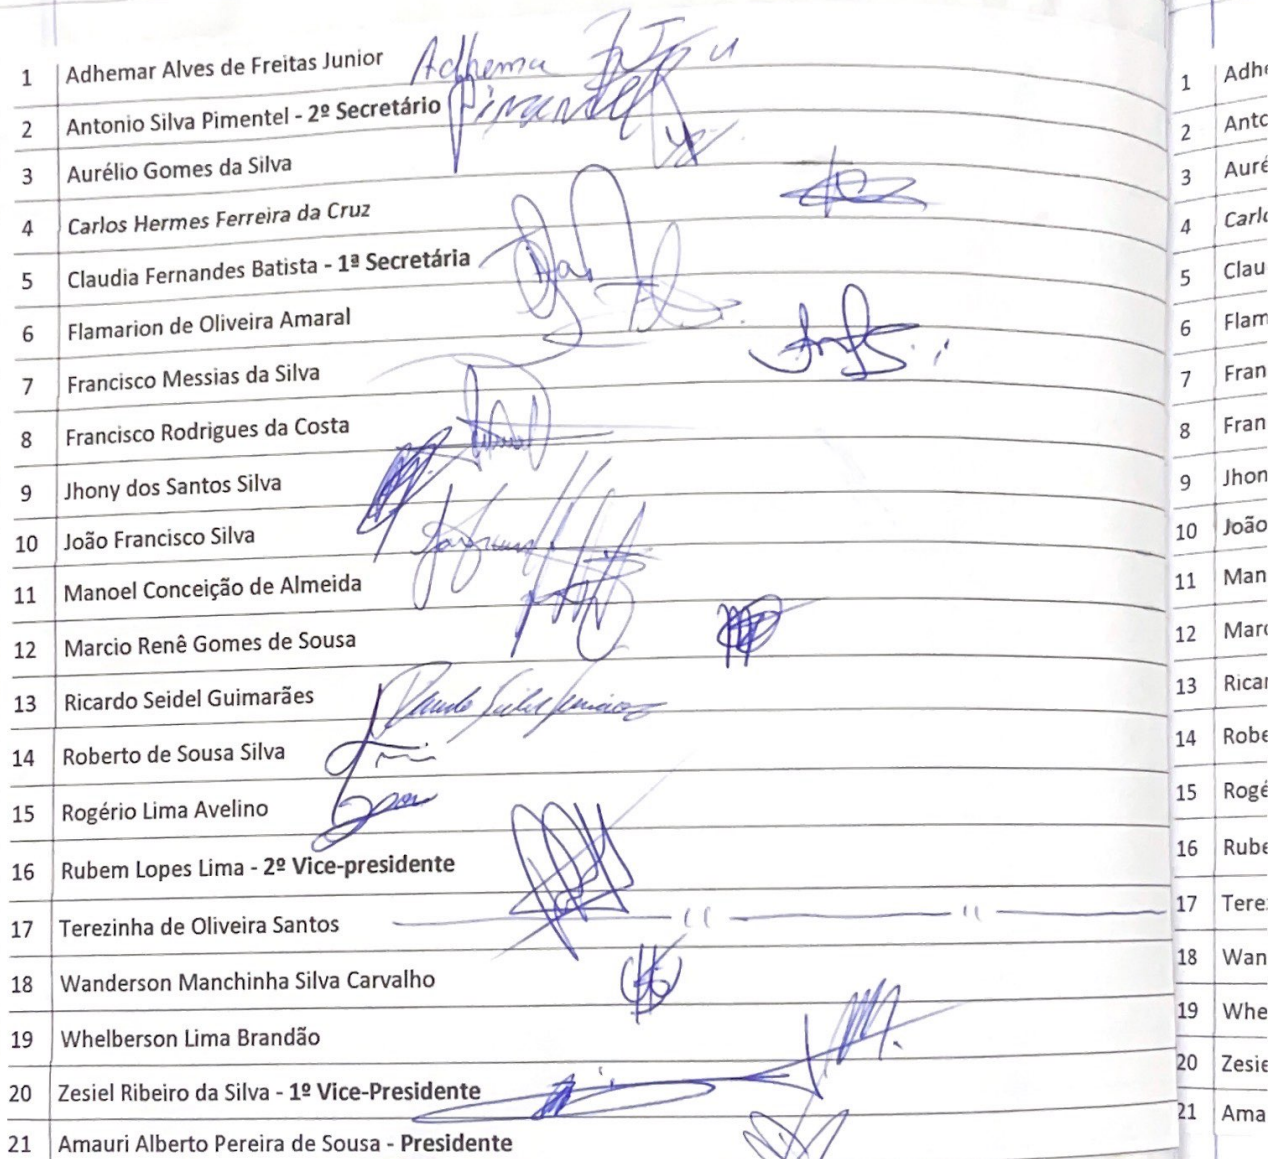 1 Adhemar Alves de Freitas Junior Adhema
2 Antonio Silva Pimentel - 2º Secretário Pimentel
3 Aurélio Gomes da Silva
4 Carlos Hermes Ferreira da Cruz
5 Claudia Fernandes Batista - 1ª Secretária
6 Flamarion de Oliveira Amaral
7 Francisco Messias da Silva
8 Francisco Rodrigues da Costa
9 Jhony dos Santos Silva
10 João Francisco Silva
11 Manoel Conceição de Almeida
12 Marcio Renê Gomes de Sousa
13 Ricardo Seidel Guimarães
14 Roberto de Sousa Silva
15 Rogério Lima Avelino
16 Rubem Lopes Lima - 2º Vice-presidente
17 Terezinha de Oliveira Santos
18 Wanderson Manchinha Silva Carvalho
19 Whelberson Lima Brandão
20 Zesiel Ribeiro da Silva - 1º Vice-Presidente
21 Amauri Alberto Pereira de Sousa - Presidente
1 Adhe
2 Anto
3 Auré
4 Carlo
5 Clau
6 Flam
7 Fran
8 Fran
9 Jhon
10 João
11 Man
12 Marc
13 Ricar
14 Robe
15 Rogé
16 Rube
17 Terez
18 Wan
19 Whe
20 Zesie
21 Ama